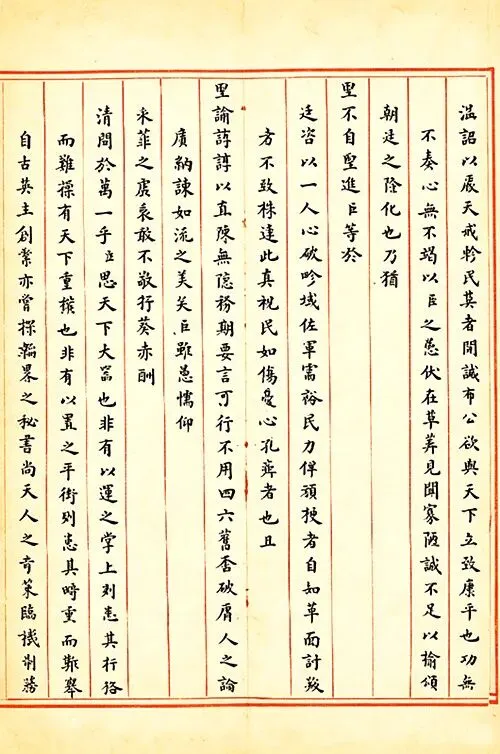 溫詔以嚴天戒軫民莫者開誠布公欲與天下立致康平也功無
不奏心無不竭以臣之愚伏在草莽見聞寡陋誠不足以揄頌
朝廷之隆化也乃猶
聖不自聖進臣等於
廷咨以一人心破畛域佐軍需裕民力俾頑梗者自知革面討叛
方不致株連此真視民如傷憂心孔齊者也且
聖諭諄諄以直陳無隱務期要言可行不用四六舊套破庸人之論
廣納諫如流之美矣臣雖愚懦仰
采葑之虞衷敢不敬行葵赤酬
清問於萬一乎臣思天下大器也非有以運之掌上則患其行格
而難操有天下重權也非有以置之平衡則患其畸重而難舉
自古英主創業亦嘗探韜畧之秘書尚天人之奇策臨機制務